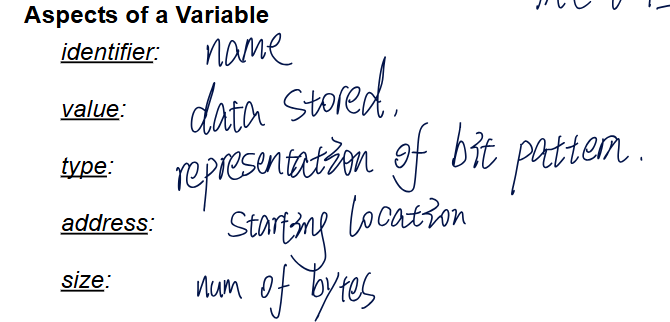 Aspects of a Variable
identifier: name
value: data stored.
type: representation of bit pattern.
address: starting location
size: num of bytes